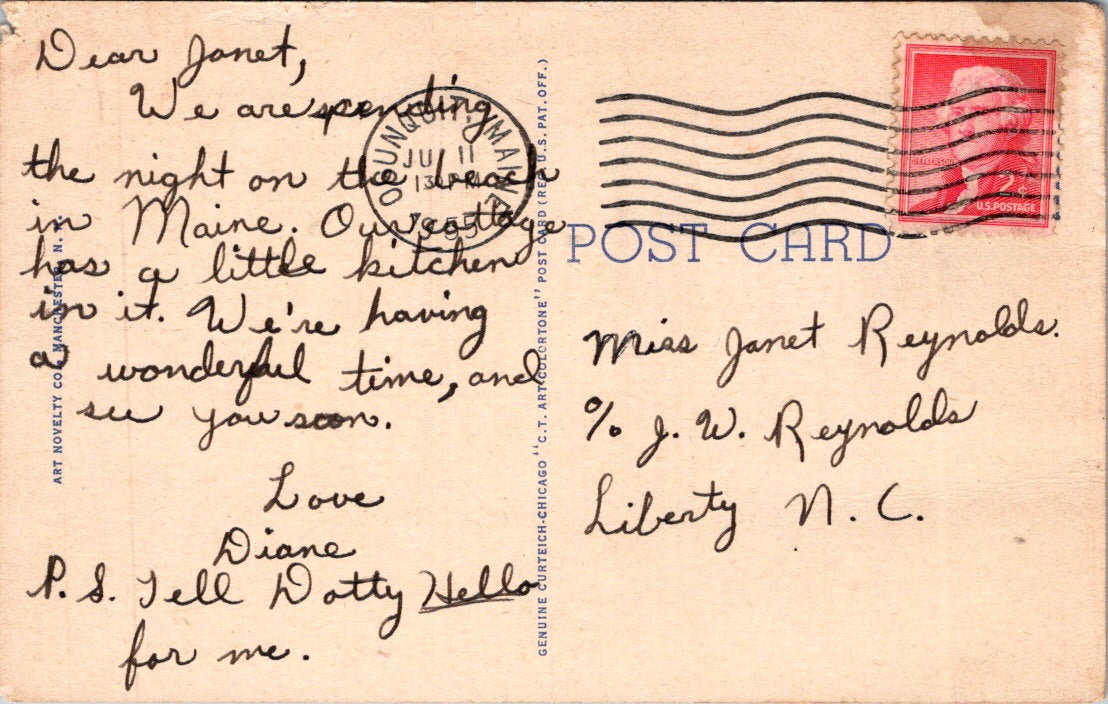 Dear Janet,
We are spending
the night on the beach
in Maine. Our cottage
has a little kitchen
in it. We're having
a wonderful time, and
see you soon.
Love
Diane
P.S. Tell Dotty Hello
for me.
ART NOVELTY CO., MANCHESTER, N. H.
GENUINE CURTEICH-CHICAGO "C.T. ART-COLORTONE" POST CARD (REG. U.S. PAT. OFF.)
OGUNQUIT, MAINE
JUL 11
PM
1955
JEFFERSON
2¢
U.S. POSTAGE
POST CARD
Miss Janet Reynolds.
% J. W. Reynolds
Liberty N. C.